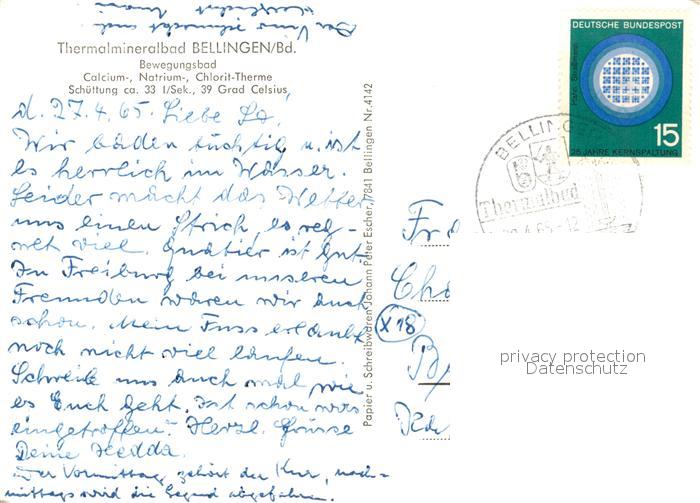 Thermalmineralbad BELLINGEN/Bd.
Bewegungsbad
Calcium-, Natrium-, Chlorit-Therme
Schüttung ca. 33 l/Sek., 39 Grad Celsius
d. 27.4.65. Liebe
Wir baden tüchtig u. ist
es herrlich im Wasser.
Leider macht das Wetter
uns einen Strich, es reg-
net viel. Quatier ist gut.
In Freiburg bei unseren
Freunden waren wir auch
schon. Mein Fuss erlaubt
noch nicht viel laufen.
Schreibe uns auch mal wie
es Euch geht. Ist schon was
eingetroffen? Herzl. Grüsse
Deine Hedda.
Der Vormittag gehört der Kur, nach-
mittags wird die Gegend abgefahren.
Papier u. Schreibwaren Johann Peter Escher, 7841 Bellingen Nr. 4142
DEUTSCHE BUNDESPOST
15
25 JAHRE KERNSPALTUNG
BELLINGEN
Thermalbad
4.65-12
Fr
Ch
X18
B
privacy protection
Datenschutz